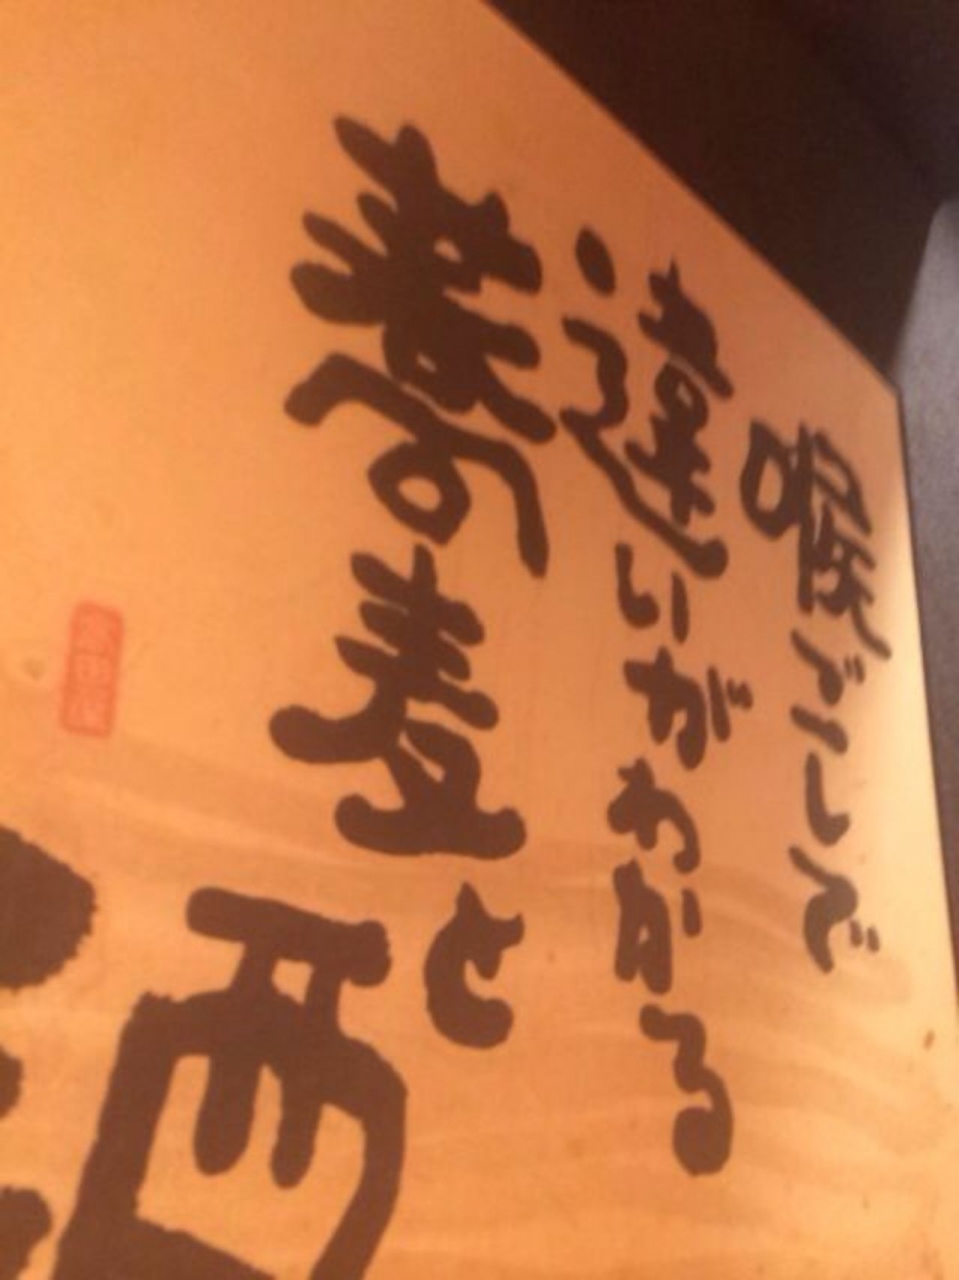 喉ごしで
違いがわかる
蕎麦と酒
高田屋